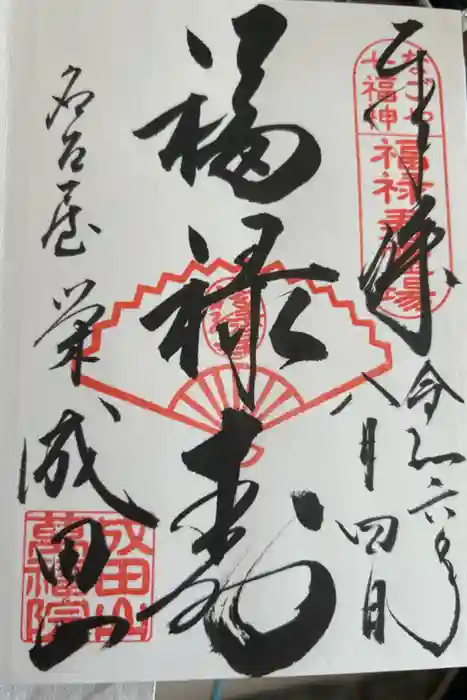 奉拝
なごや七福神
福禄寿霊場
令和六年
八月四日
福禄寿
福禄寿
名古屋栄成田山
成田山萬福院